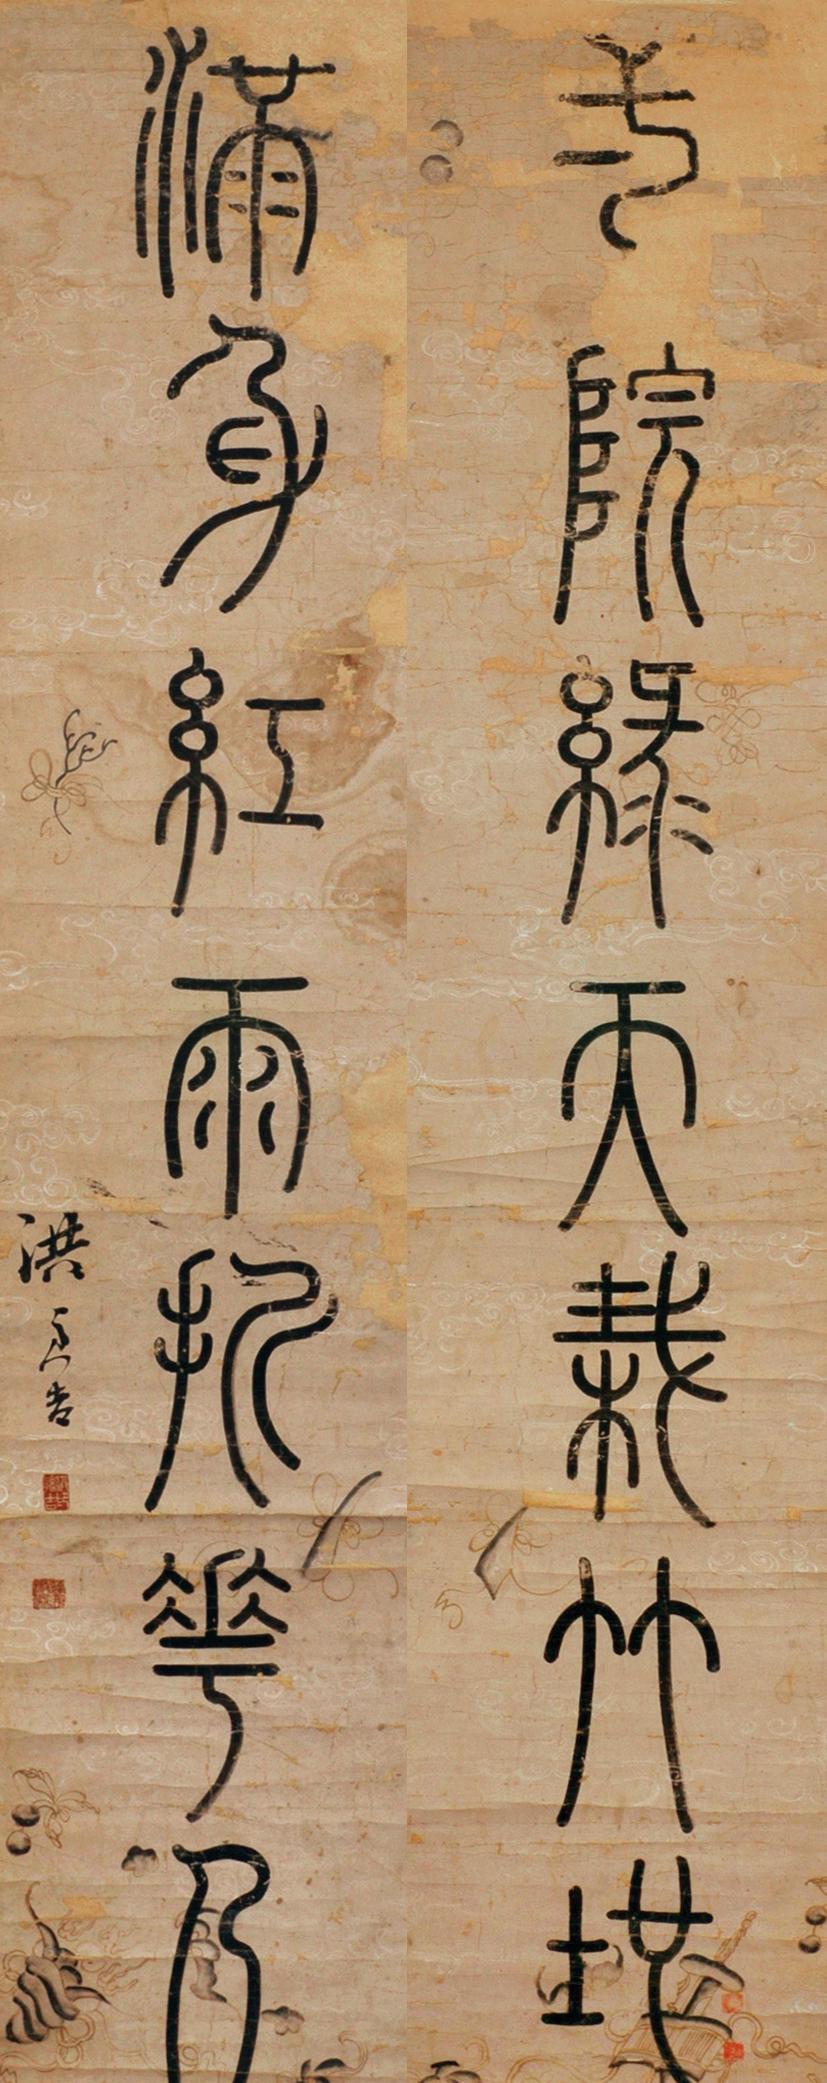 院綠天栽竹地
滿身紅雨折花人
洪亮吉